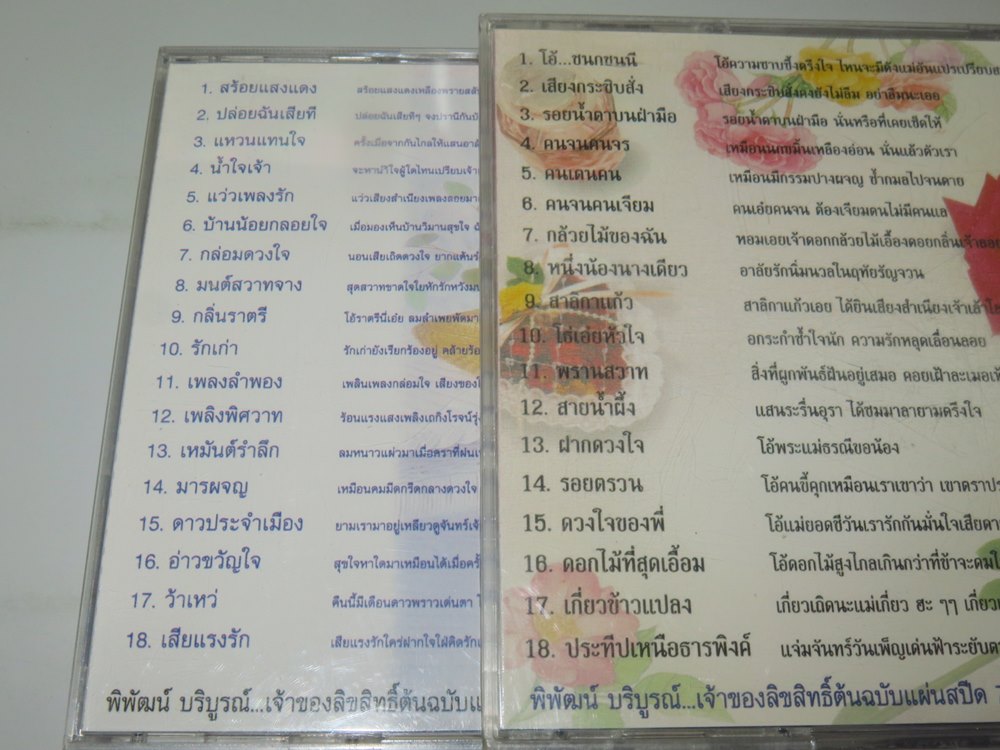 1. สร้อยแสงแดง สร้อยแสงแดงเหลืองพรายสลับ
2. ปล่อยฉันเสียที ปล่อยฉันเสียทีๆ จงปรานีกันบ้
3. แหวนแทนใจ ครั้งเมื่อจากกันไกลให้แสนอาลั
4. น้ำใจเจ้า
5. แว่วเพลงรัก แว่วเสียงสำเนียงเพลงลอยมา
6. บ้านน้อยกลอยใจ เมื่อมองเห็นบ้านวิมานสุขใจ
7. กล่อมดวงใจ นอนเสียเถิดดวงใจ
8. มนต์สวาทจาง สุดสวาทขาดใจใยหักรักหวัง
9. กลิ่นราตรี โอ้ราตรีนี่เอ๋ย ลมลำเพยพัดมา
10. รักเก่า รักเก่ายังเรียกร้องอยู่ คล้ายร้อ
11. เพลงลำพอง เพลินเพลงกล่อมใจ เสียงของใ
12. เพลิงพิศวาท ร้อนแรงแสงเพลิงเถกิงโรจน์รุ่ง
13. เหมันต์รำลึก ลมหนาวแผ่วมาเมื่อคราที่ฝน
14. มารผจญ เหมือนคมมีดกรีดกลางดวงใจ
15. ดาวประจำเมือง ยามเรามาอยู่เหลียวดูจันทร์เจ้
16. อ่าวขวัญใจ สุขใจหาใดมาเหมือนได้เมื่อครั้
17. ว้าเหว่ คืนนี้มีเดือนดาวพราวเด่นตา
18. เสียแรงรัก เสียแรงรักใคร่ฝากใจใฝ่คิดรัก
พิพัฒน์ บริบูรณ์...เจ้าของลิขสิทธิ์ต้นฉบับแผ่
1. โอ้...ชนกชนนี โอ้ความซาบซึ้งตรึงใจ ไหนจะมีดังแม่อันแปรเปรียบ
2. เสียงกระซิบสั่ง เสียงกระซิบสั่งคงยังไม่ลืม อย่าลืมนะเธอ
3. รอยน้ำตาบนฝ่ามือ รอยน้ำตาบนฝ่ามือ นั่นหรือที่เคยเชิดให้
4. คนจนคนจร เหมือนนกขมิ้นเหลืองอ่อน นั่นแล้วตัวเรา
5. คนเดนคน เหมือนมีกรรมปางผจญ ช้ำกมลไปจนตาย
6. คนจนคนเจียม คนเอ๋ยคนจน ต้องเจียมตนไม่มีคนแล
7. กล้วยไม้ของฉัน หอมเอยเจ้าดอกกล้วยไม้เอื้องดอยกลิ่นเจ้าลอย
8. หนึ่งน้องนางเดียว อาลัยรักนิ่มนวลในฤทัยรัญจวน
9. สาลิกาแก้ว สาลิกาแก้วเอย ได้ยินเสียงสำเนียงเจ้าเล้าโล
10. โธ่เอ๋ยหัวใจ อกระกำช้ำใจนัก ความรักหลุดเลื่อนลอย
11. พรานสวาท สิ่งที่ผูกพันธ์ฝันอยู่เสมอ คอยเฝ้าละเมอ
12. สายน้ำผึ้ง แสนระรื่นอุรา ได้ชมมาลายามตรึงใจ
13. ฝากดวงใจ โอ้พระแม่ธรณีขอน้อง
14. รอยตรวน โอ้คนขี้คุกเหมือนเราเขาว่า เขาตราปร
15. ดวงใจของพี่ โอ้แม่ยอดชีวันเรารักกันมั่นใจเสียดา
16. ดอกไม้ที่สุดเอื้อม โอ้ดอกไม้สูงไกลเกินกว่าที่ข้าจะดมใ
17. เกี่ยวข้าวแปลง เกี่ยวเถิดนะแม่เกี่ยว ฮะ ๆๆ เกี่ยว
18. ประทีปเหนือธารพิงค์ แจ่มจันทร์วันเพ็ญเด่นฟ้าระยับ
พิพัฒน์ บริบูรณ์...เจ้าของลิขสิทธิ์ต้นฉบับแผ่นสปีด